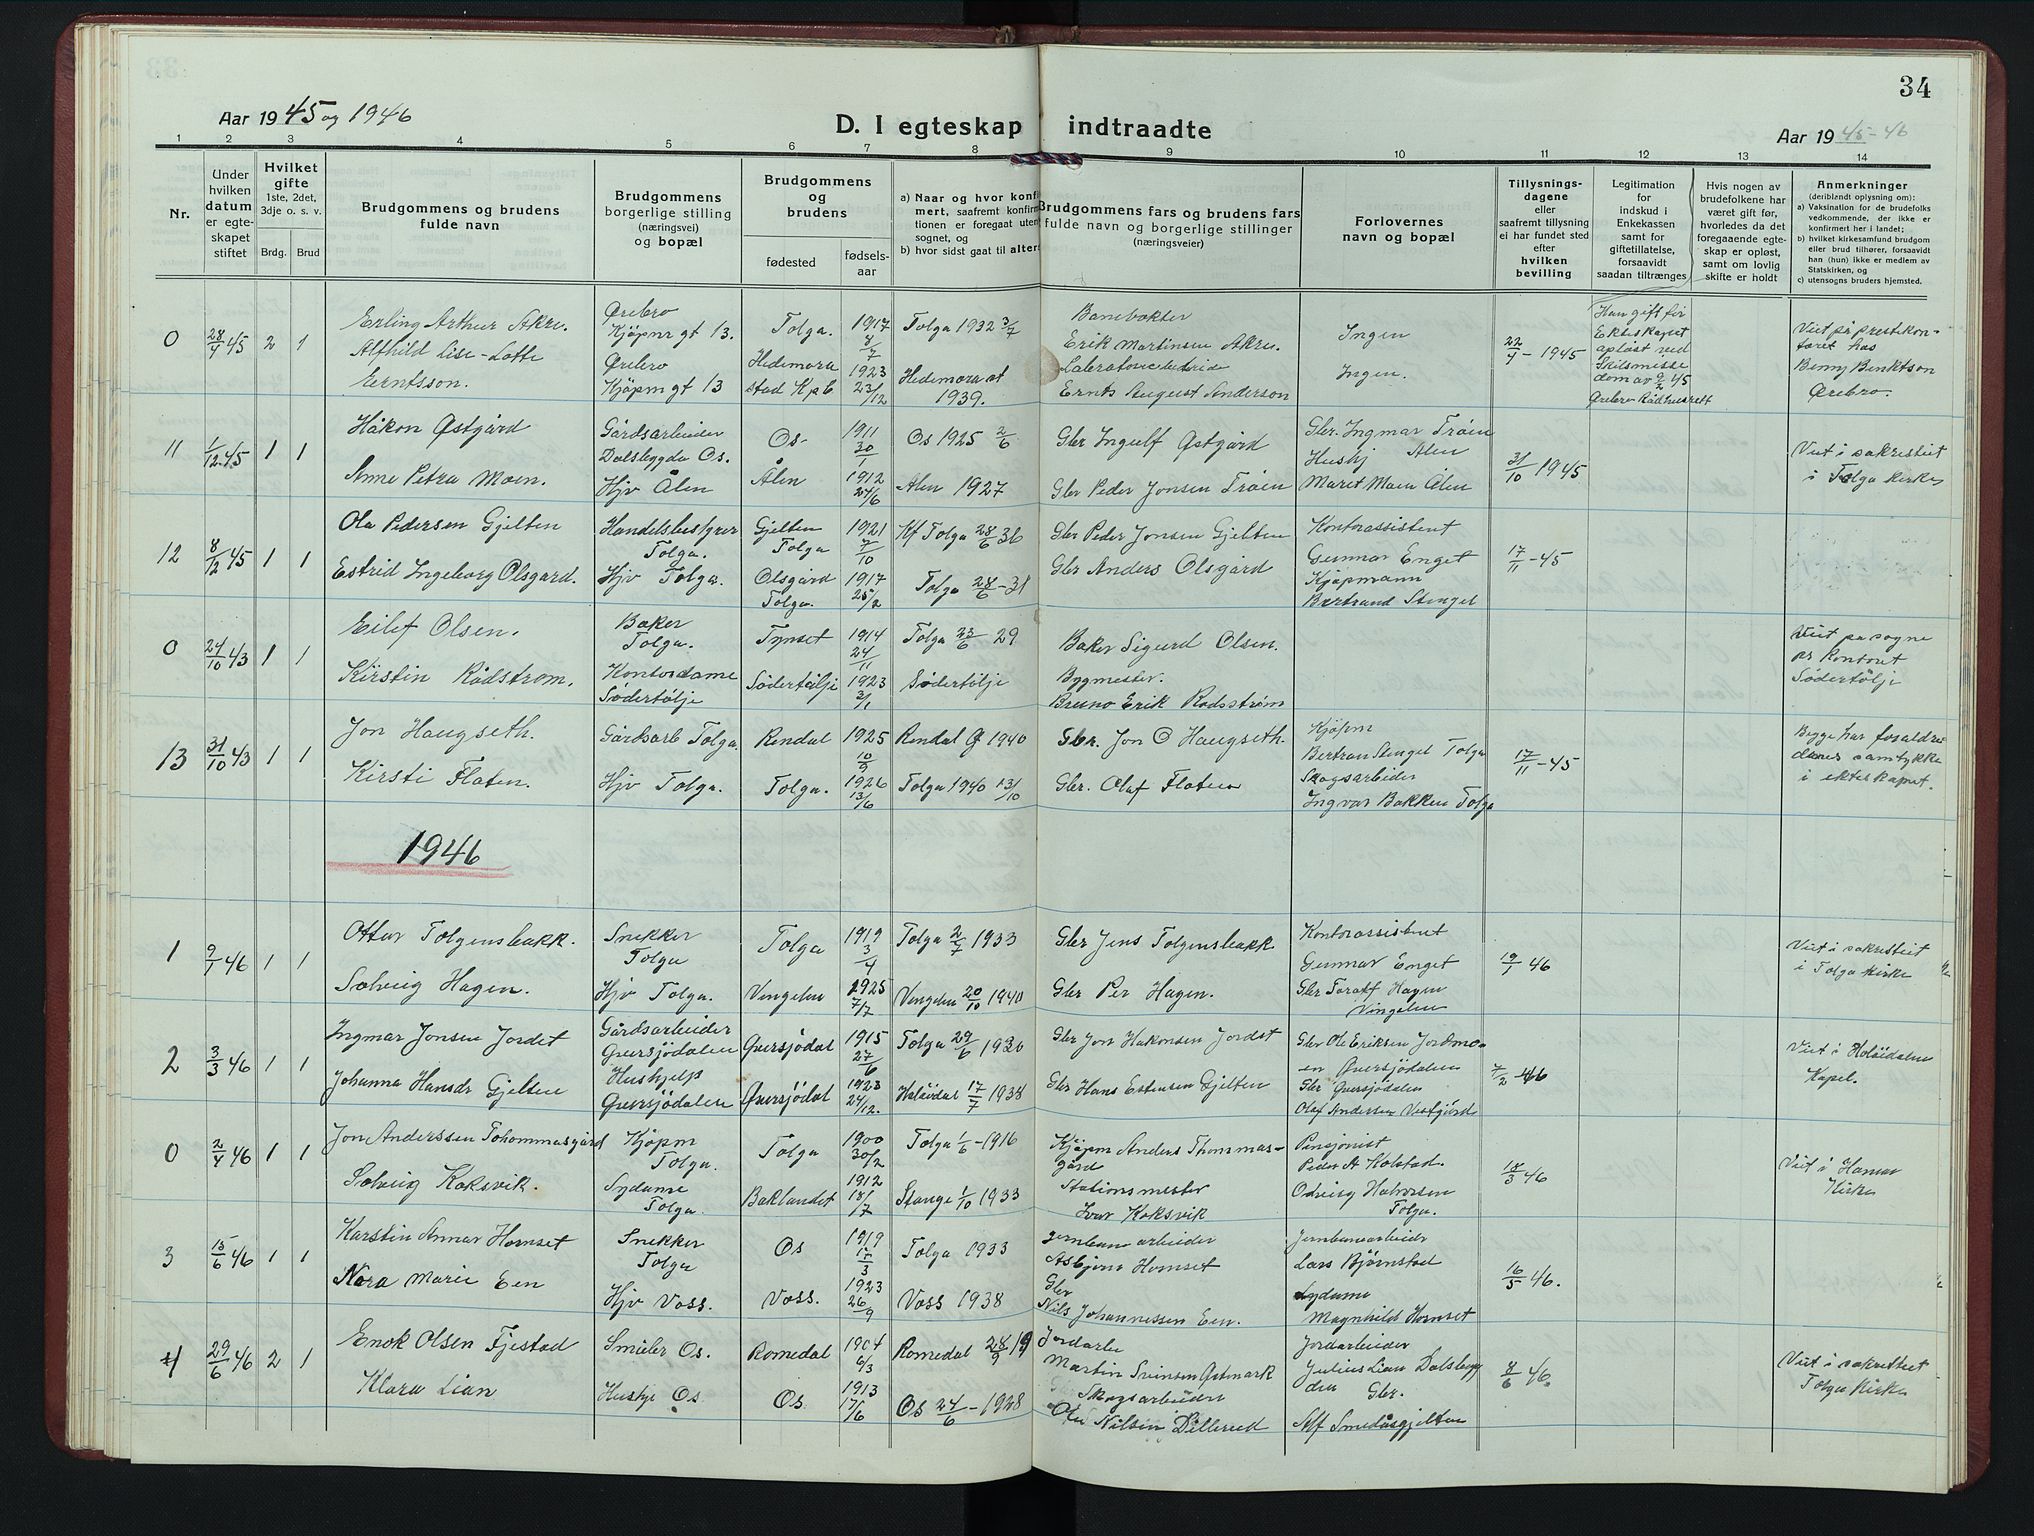 34
Aar 1945 og 1946
D. I egteskap indtraadte
Aar 1945-46
1 2 3 4 5 6 7 8 9 10 11 12 13 14
Nr.
Under
hvilken
datum
er egte-
skapet
stiftet
Hvilket
gifte
1ste, 2det,
3dje o. s. v.
Brdg. Brud
Brudgommens og brudens
fulde navn
Brudgommens
borgerlige stilling
(næringsvei)
og bopæl
Brudgommens
og
brudens
fødested
fødsels-
aar
a) Naar og hvor konfi
mert, saafremt konfirm
tionen er foregaat uten
sognet, og
b) hvor sidst gaat til alters
Brudgommens fars og brudens fars
fulde navn og borgerlige stillinger
(næringsveier)
Forlovernes
navn og bopæl
Tillysnings-
dagene
eller
saafremt tillysning
ei har fundet sted
efter
hvilken
bevilling
Legitimation
for
indskud i
Enkekassen
samt for
giftetillatelse,
forsaavidt
saadan tiltrænges
Hvis nogen av
brudefolkene har
været gift før,
hvorledes da det
foregaaende egte-
skap er opløst,
samt om lovlig
skifte er holdt
Anmerkninger
(deriblandt oplysning om):
a) Vaksination for de brudefolks
vedkommende, der ikke er
konfirmert her i landet;
b) hvilket kirkesamfund brudgom
eller brud tilhører, forsaavidt
han (hun) ikke er medlem av
Statskirken, og
c) utensogns bruders hjemsted.
0 28/4 45 2 1
Erling Arthur Akre.
Althild Lise-Lotte
Erntsson.
Ørebro
Kjøpm gt 13.
Ørebro
Kjøpm gt 13
Tolga.
Hedemora
stad
1917
8/7
1923
23/12
Tolga 1932 3/7
Hedemora
1939.
Banevokter
Erik Martinsen Akre.
Ernts August Anderson
Ingen
Ingen.
22/4 - 1945
Han gift før
Ekteskapet
opløst ved
Skilsmisse
dom av 9/2 45
Ørebro Rådhusrett
Viet på prestekon-
toret hos
Benny Benktson
Ørebro.
11 1/12 45 1 1
Håkon Østgård
Anne Petra Moen.
Gårdsarbeider
Dalsbygda Os.
Hjv Ålen
Os
Ålen
1911
30/1
1912
24/6
Os 1925 2/6
Ålen 1927
Gbr Ingulf Østgård
Gbr Peder Jonsen Trøen
Gbr. Ingmar Trøen
Hushj Ålen
Marit Moen Ålen
31/10 1945
Viet i sakristiet
i Tolga kirke
12 8/12 45 1 1
Ola Pedersen Gjelten
Estrid Ingeborg Olsgard.
Handelsbestyrer
Tolga.
Hjv Tolga.
Gjelten
Tolga
Olsgård
Tolga.
1921
7/10
1917
25/2
Kf Tolga 28/6 36
Tolga 28/6 - 31
Gbr Peder Jonsen Gjelten
Gbr Anders Olsgård
Kontorassistent
Gunnar Enget
Kjøpmann
Bertrand Stengel
17/11 - 45
0 24/10 43 1 1
Eilef Olsen.
Kirstin Rådstrøm.
Baker
Tolga.
Kontordame
Södertölje
Tynset
Södertälje
1914
24/11
1923
3/1
Tolga 23/6 29
Södertölje
Baker Sigurd Olsen.
Bygmester.
Bruno Erik Rådsstrøm
Viet på sogne
pr kontoret
Södertölje
13 31/10 43 1 1
Jon Haugseth.
Kirsti Flaten.
Gårdsarb Tolga.
Hjv Tolga.
Rendal
Tolga.
1925
10/9
1926
13/6
Rendal Ø 1940
Tolga 1940 13/10
Gbr. Jon O Haugseth.
Gbr. Olaf Flaten
Kjøpm
Bertran Stengel Tolga
Skogsarbeider
Ingvar Bakken Tolga
17/11 - 45
Begge har foreldre
denes samtykke
i ekteskapet.
1946
1 9/1 46 1 1
Ottar Tolgensbakk.
Solveig Hagen.
Snekker
Tolga
Hjv Tolga.
Tolga
Vingelen
1919
3/4
1925
7/7
Tolga 2/7 1933
Vingelen 20/10 1940
Gbr Jens Tolgensbakk
Gbr Per Hagen.
Kontorassistent
Gunnar Enget
Gbr Toralf Hagen
Vingelen
19/1 46
Viet i sakristiet
i Tolga kirke
2 3/3 46 1 1
Ingmar Jonsen Jordet
Johanna Hansdr Gjelten
Gårdsarbeider
Øversjødalen
Hushjelp
Øversjødalen
Øversjödal
Øversjödal
1915
27/6
1923
24/12.
Tolga 29/6 1930
Holøidal 17/7 1938
Gbr Jon Hakonsen Jordet
Gbr Hans Estensen Gjelten
Gbr Ole Eriksen Jordmo-
en Øversjødalen
Gbr Øversjødalen
Olaf Andersen Vestgård
7/2 - 46
Viet i Holøidalen
Kapel.
0 2/4 46 1 1
Jon Anderssen Tohommasgård
Solveig Koksvik.
Kjøpm
Tolga.
Sydame
Tolga.
Tolga
Baklandet
1900
30/2
1912
18/7
Tolga 1/6 - 1916
Stange 1/10 1933
Kjøpm Anders Thommas-
gård
Stationsmester
Ivar Koksvik
Pensjonist
Peder A Kolstad.
Odveig Halvorsen
Tolga.
18/3 46
Viet i Hamar
Kirke
3 15/6 46 1 1
Karstin Annar Hornset
Nora Marie Een
Snekker
Tolga
Hjv Voss.
Os
Voss.
1919
17/3
1923
26/9
Tolga 1933
Voss 1938
Jernbanearbeider
Asbjørn Hornset
Gbr
Nils Johannessen Een.
Jernbanearbeider
Lars Bjørnstad
Sydame
Magnhild Hornset
16/5 46.
4 29/6 46 2 1
Enok Olsen Fjestad
Klara Lian
Smieler Os.
Hushje Os
Romedal
Os
1904
6/3
1913
17/6
Romedal 28/9 19
Os 24/6 - 1928
Jordarb
Martin Svensen Østmark
Skogsarbeider
Ole Nilsen Dillerud
Jordarbeider
Julius Lian Dalsbyg
den Gbr.
Alf Smedåsgjelten
8/6 46.
Viet i sakristiet
Tolga Kirke